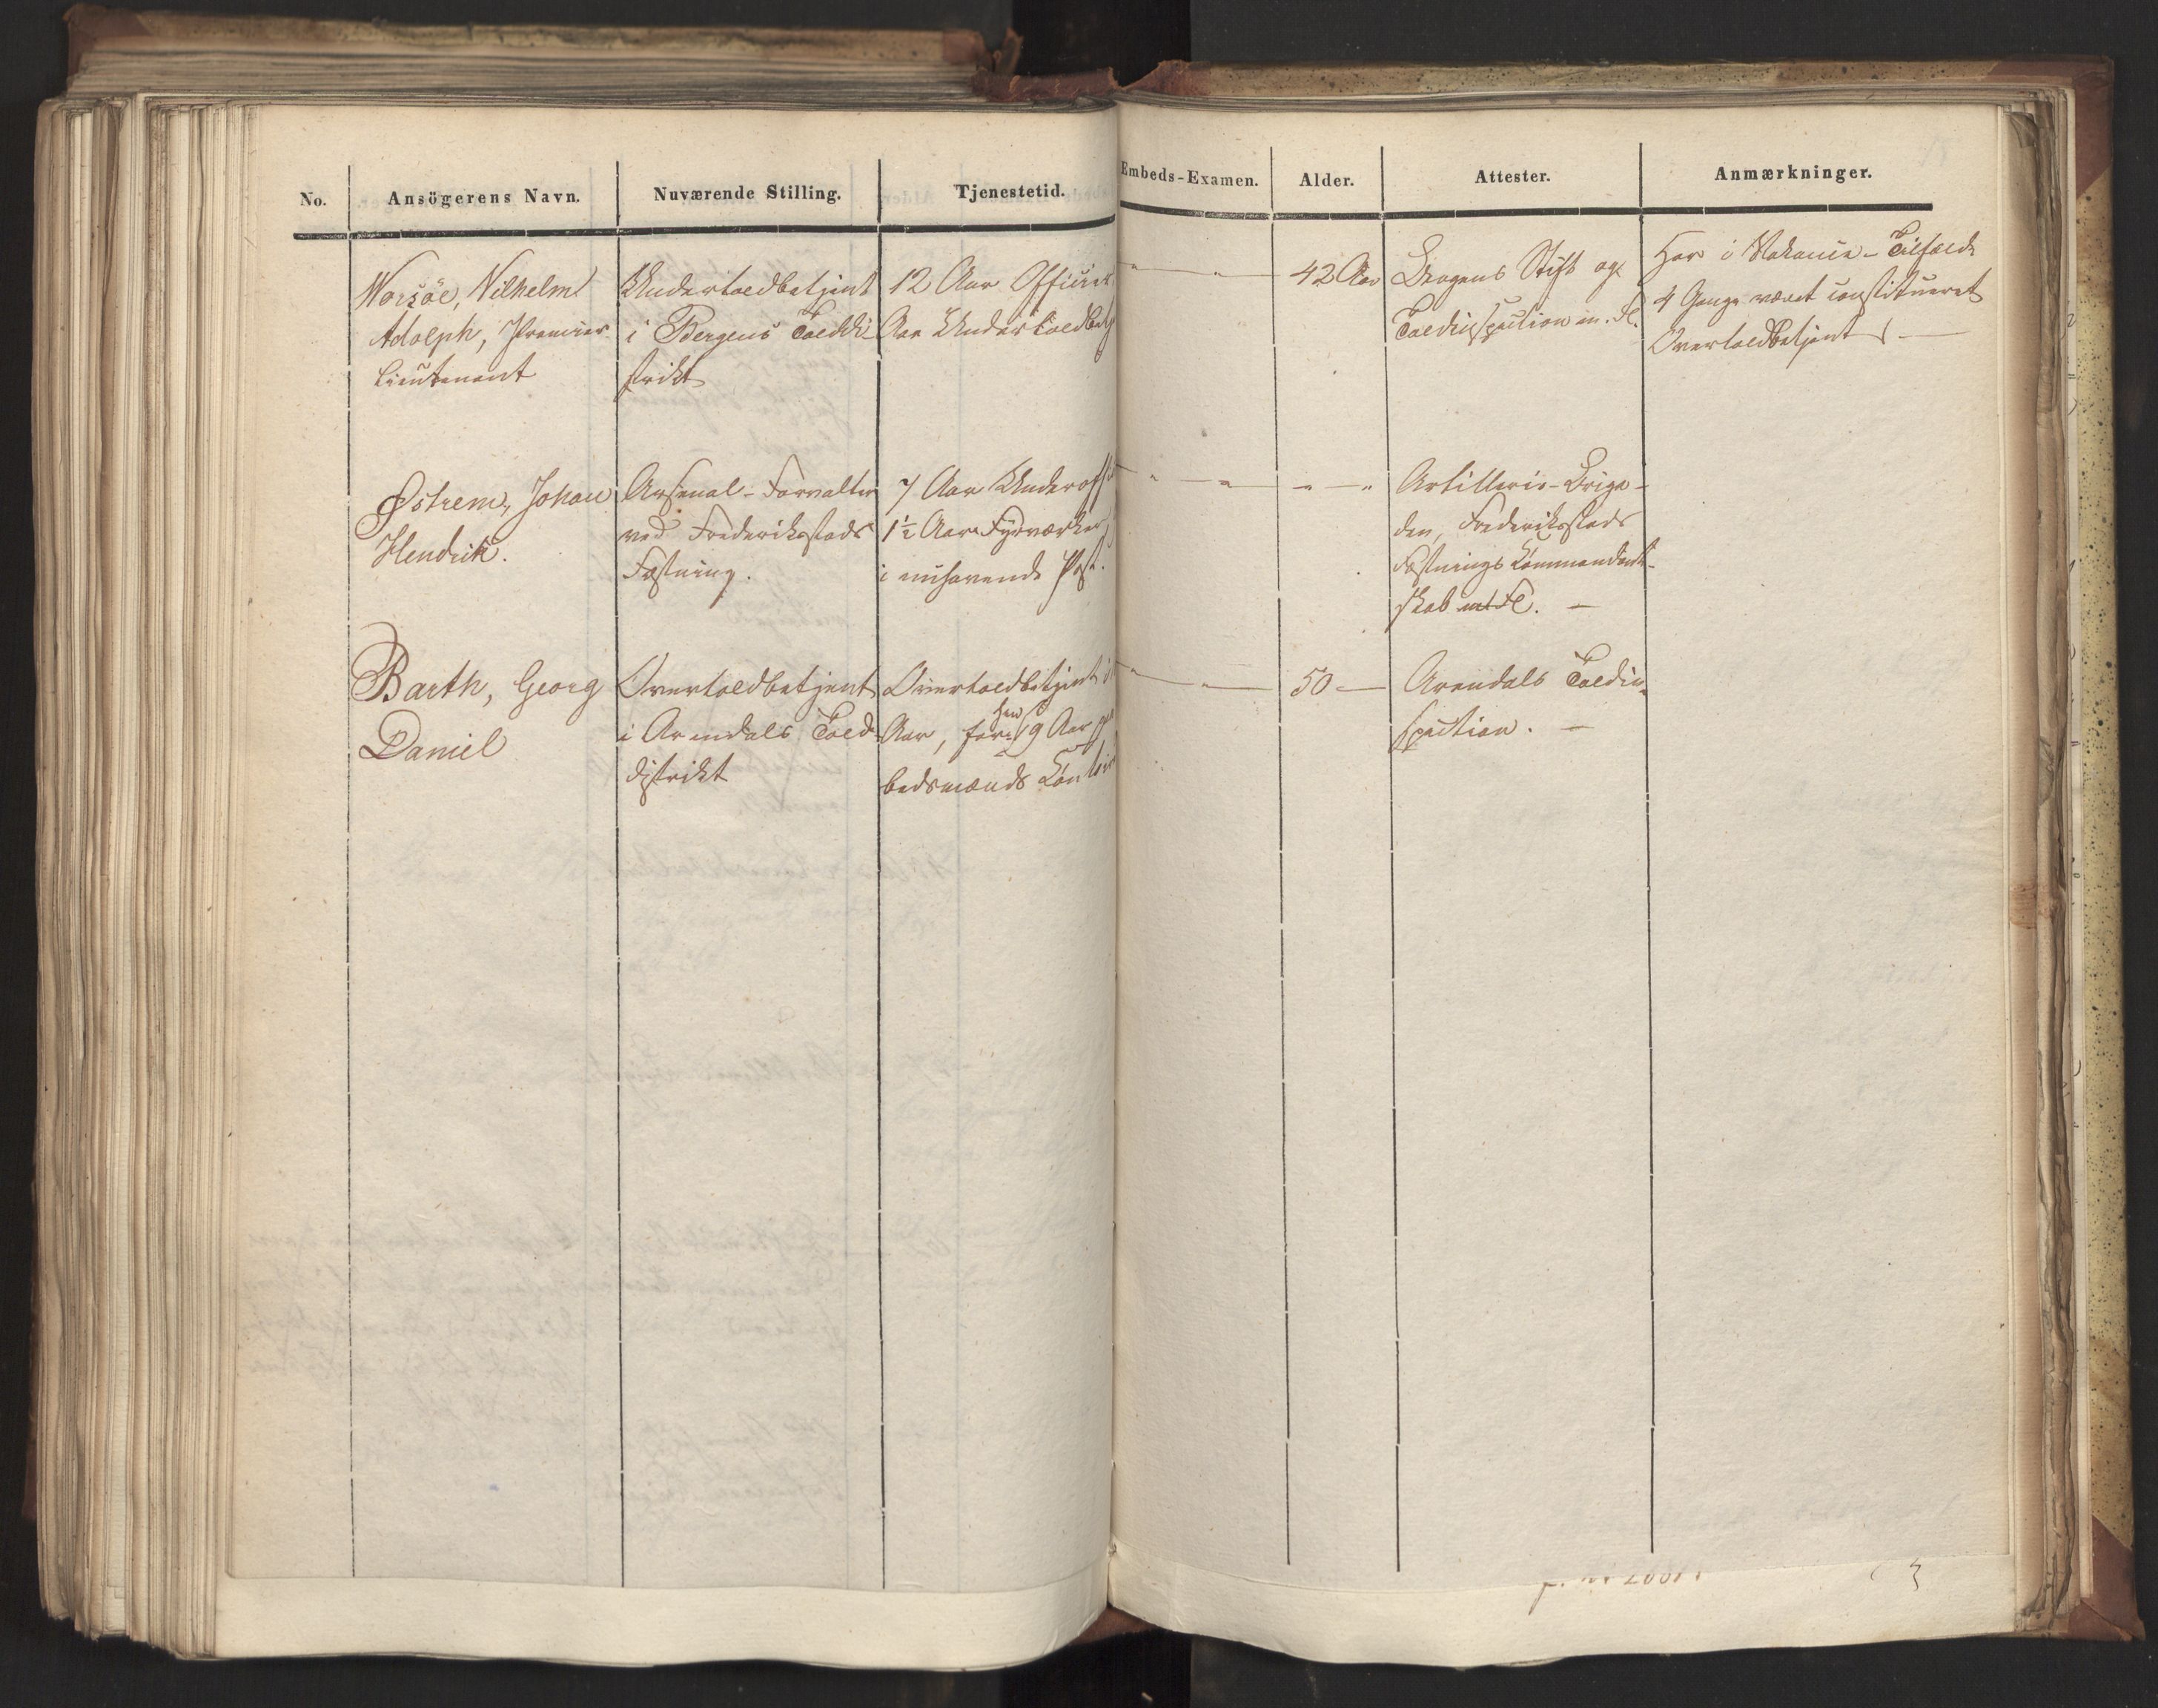 No. Ansögerens Navn. Nuværende Stilling. Tjenestetid. Embeds-Examen. Alder. Attester. Anmærkninger.
Worsöe, Vilhelm
Adolph, Premier
Lieutenant
Undertoldbetjent
i Bergens Tolddi-
strikt
12 Aar Officier
Aar Undertoldbetj
" — " —
42 Aar
Bergens Stift og
Toldinspection m. Fl.
Har i Vakance-Tilfælde
4 Gange været constitueret
Overtoldbetjent —
Østrem, Johan
Hendrik.
Arsenal-Forvalter
ved Frederiksstads
Fæstning.
7 Aar Underoff
1½ Aar Fyrværker,
i nuhavende Post.
" — " —
" — "
Artillerie-Briga-
den, Frederiksstads
Fæstnings Kommandant-
skab m Fl. —
Barth, Georg
Daniel
Overtoldbetjent
i Arendals Told-
distrikt
Overtoldbetjent i
Aar, forhen 9 Aar
bedsmænds Kontoir
" — " —
50 —
Arendals Toldin-
spection. —